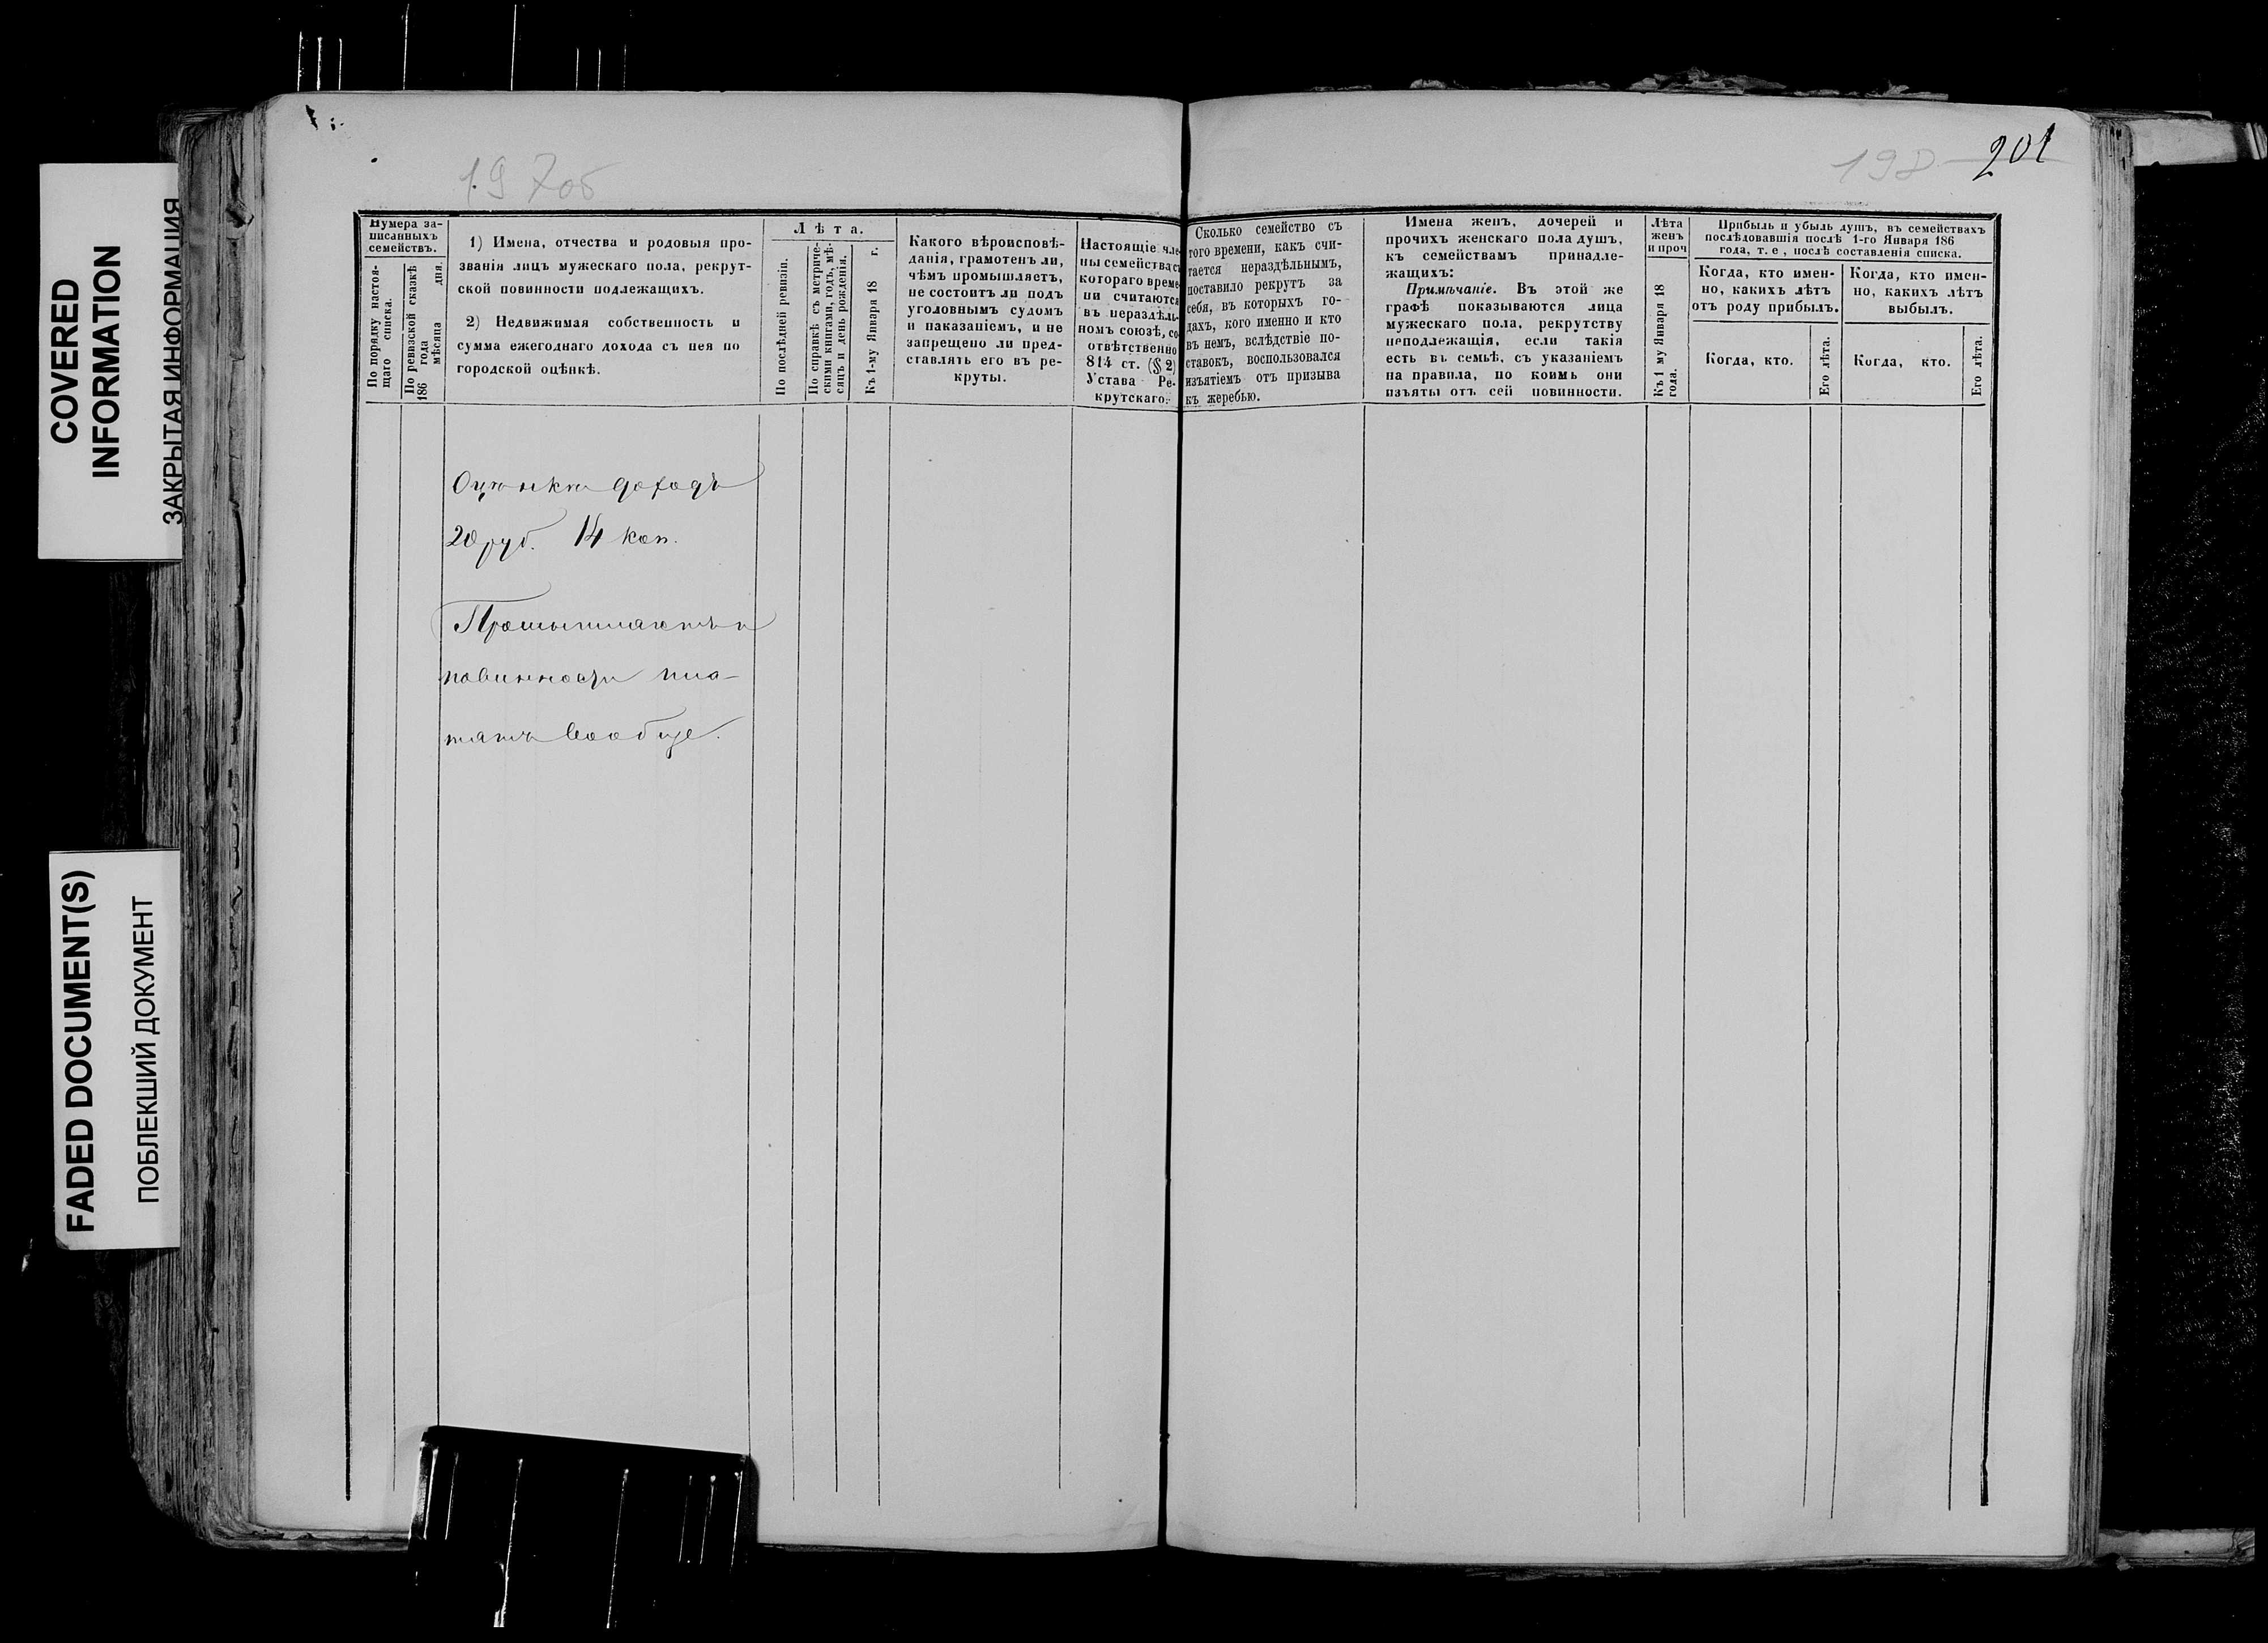 COVERED
INFORMATION
ЗАКРЫТАЯ ИНФОРМАЦИЯ
FADED DOCUMENT(S)
ПОБЛЕКШИЙ ДОКУМЕНТ
197об
198
201
Нумера за-
писанныхъ
семействъ.
По порядку настоя-
щаго списка.
По ревизской сказкѣ
186 года
мѣсяца дня.
1) Имена, отчества и родовыя про-
званія лицъ мужескаго пола, рекрут-
ской повинности подлежащихъ.
2) Недвижимая собственность и
сумма ежегоднаго дохода съ нея по
городской оцѣнкѣ.
Лѣта.
По послѣдней ревизіи.
По справкѣ съ метриче-
скими книгами, годъ, мѣ-
сяцъ и день рожденія.
Къ 1-му Января 18 г.
Какого вѣроисповѣ-
данія, грамотенъ ли,
чѣмъ промышляетъ,
не состоитъ ли подъ
уголовнымъ судомъ
и наказаніемъ, и не
запрещено ли пред-
ставлять его въ ре-
круты.
Настоящіе чле-
ны семейства съ
котораго време-
ни считаются
въ нераздѣль-
номъ союзѣ, со-
отвѣтственно
814 ст. (§ 2)
Устава Ре-
крутскаго.
Сколько семейство съ
того времени, какъ счи-
тается нераздѣльнымъ,
поставило рекрутъ за
себя, въ которыхъ го-
дахъ, кого именно и кто
въ немъ, вслѣдствіе по-
ставокъ, воспользовался
изъятіемъ отъ призыва
къ жеребью.
Имена женъ, дочерей и
прочихъ женскаго пола душъ,
къ семействамъ принадле-
жащихъ:
Примѣчаніе. Въ этой же
графѣ показываются лица
мужескаго пола, рекрутству
неподлежащія, если такія
есть въ семьѣ, съ указаніемъ
на правила, по коимъ они
изъяты отъ сей повинности.
Лѣта
женъ
и проч
Къ 1 му Января 18
года.
Прибыль и убыль душъ, въ семействахъ
послѣдовавшія послѣ 1-го Января 186
года, т. е, послѣ составленія списка.
Когда, кто имен-
но, какихъ лѣтъ
отъ роду прибылъ.
Когда, кто.
Его лѣта.
Когда, кто имен-
но, какихъ лѣтъ
выбылъ.
Когда, кто.
Его лѣта.
Оцѣнки доходъ
20 руб. 14 коп.
Промышляетъ и
повинности пла-
тятъ вообще.